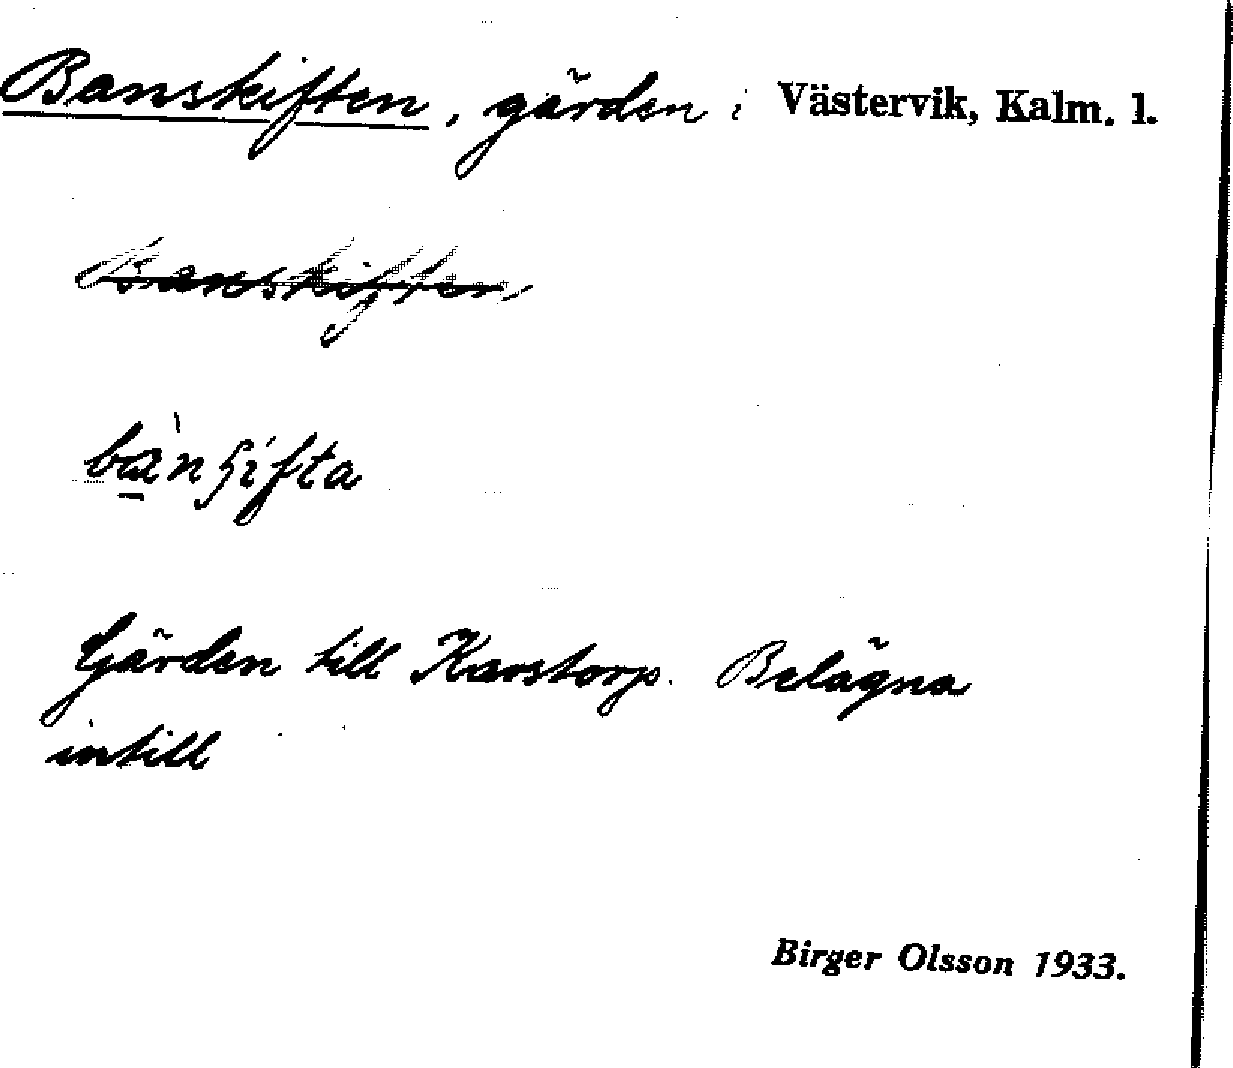 Banskiften, gärden i Västervik, Kalm. l.
Banskiften
Gärden till Karstorp. Belägna
intill
Birger Olsson 1933.